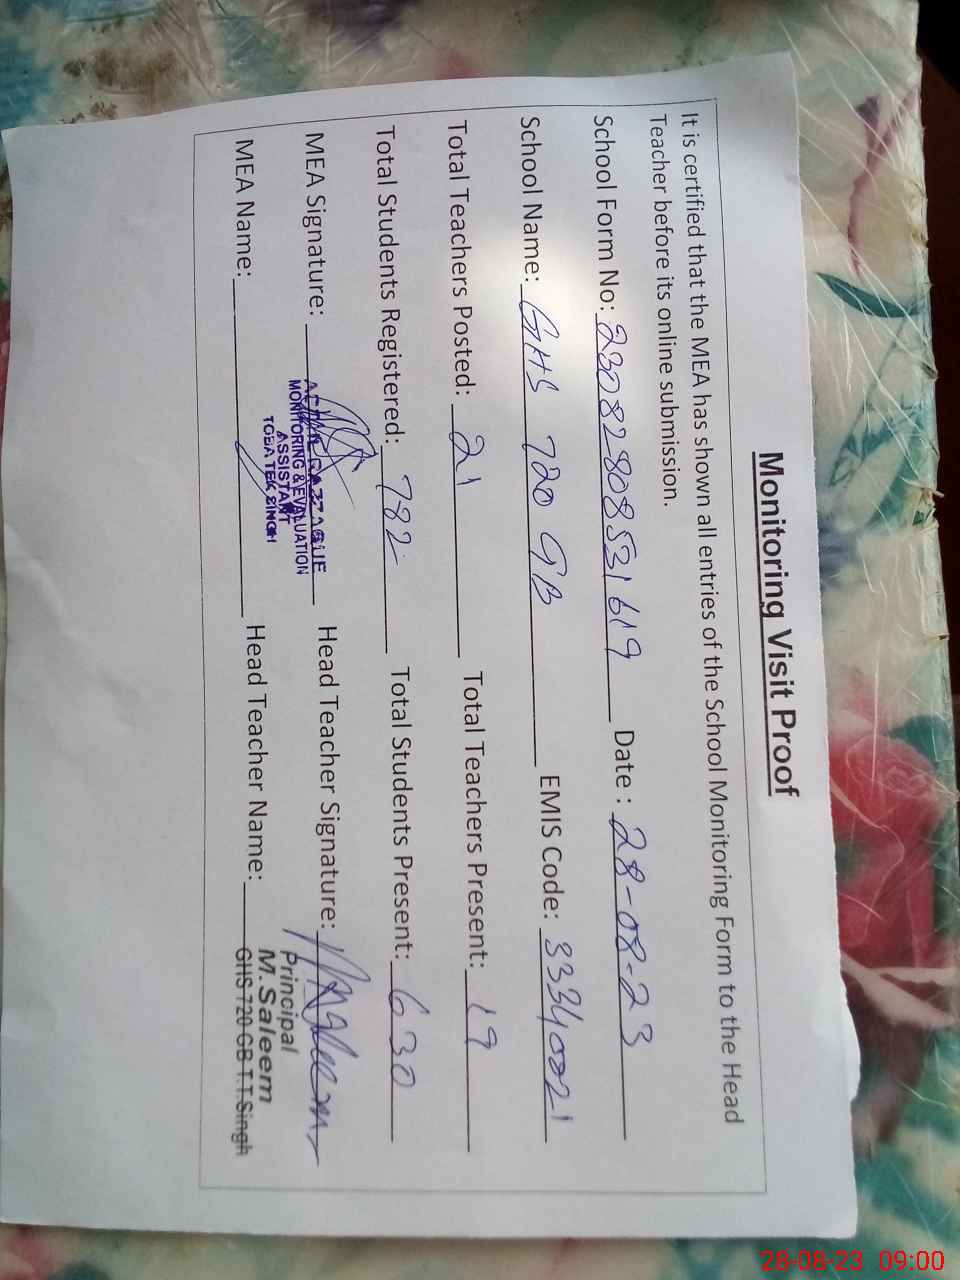 Monitoring Visit Proof
It is certified that the MEA has shown all entries of the School Monitoring Form to the Head
Teacher before its online submission.
School Form No: 23082808531619 Date : 28-08-23
School Name: GHS 720 GB EMIS Code: 33340021
Total Teachers Posted: 21 Total Teachers Present: 19
Total Students Registered: 782 Total Students Present: 630
MEA Signature: Head Teacher Signature:
MONITORING & EVALUATION
ASSISTANT
TOBA TEK SINGH
Principal
M.Saleem
MEA Name: Head Teacher Name: GHS 720 GB T.T.Singh
28-08-23 09:00